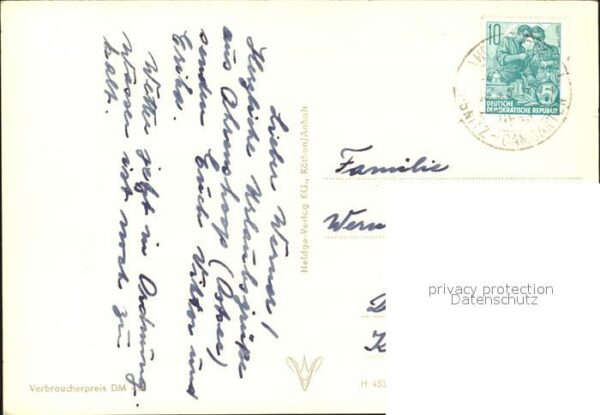 Lieber Werner,
Herzliche Urlaubsgrüße
aus Ahrenshoop (Ostsee)
senden Euch Viktor und
Erika.
Wetter jetzt in Ordnung.
Wasser ist noch zu
kalt.
Verbraucherpreis DM
Heldge-Verlag KG., Köthen/Anhalt
10
DEUTSCHE
DEMOKRATISCHE REPUBLIK
5
Familie
Wern
D
K
H 450
privacy protection
Datenschutz